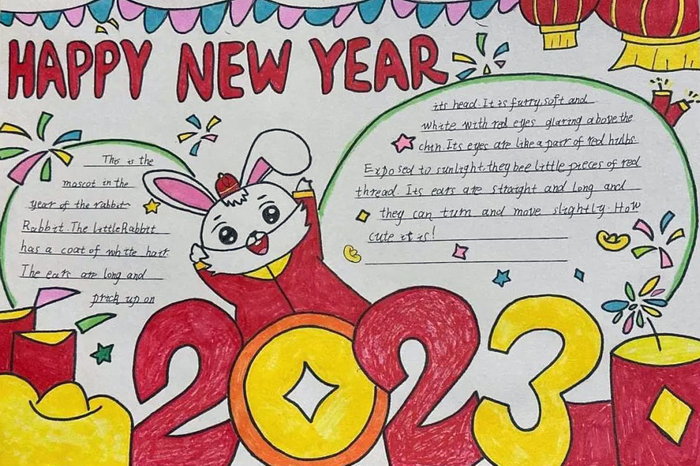 HAPPY NEW YEAR
This is the
mascot in the
year of the rabbit
Rabbit. The little Rabbit
has a coat of white hair
The ears are long and
prick up on
its head. It is furry, soft and
white with red eyes glaring above the
chin. Its eyes are like a pair of red
Exposed to sunlight, they bee little pieces of red
thread. Its ears are straight and long and
they can turn and move slightly. How
cute it is!
2023